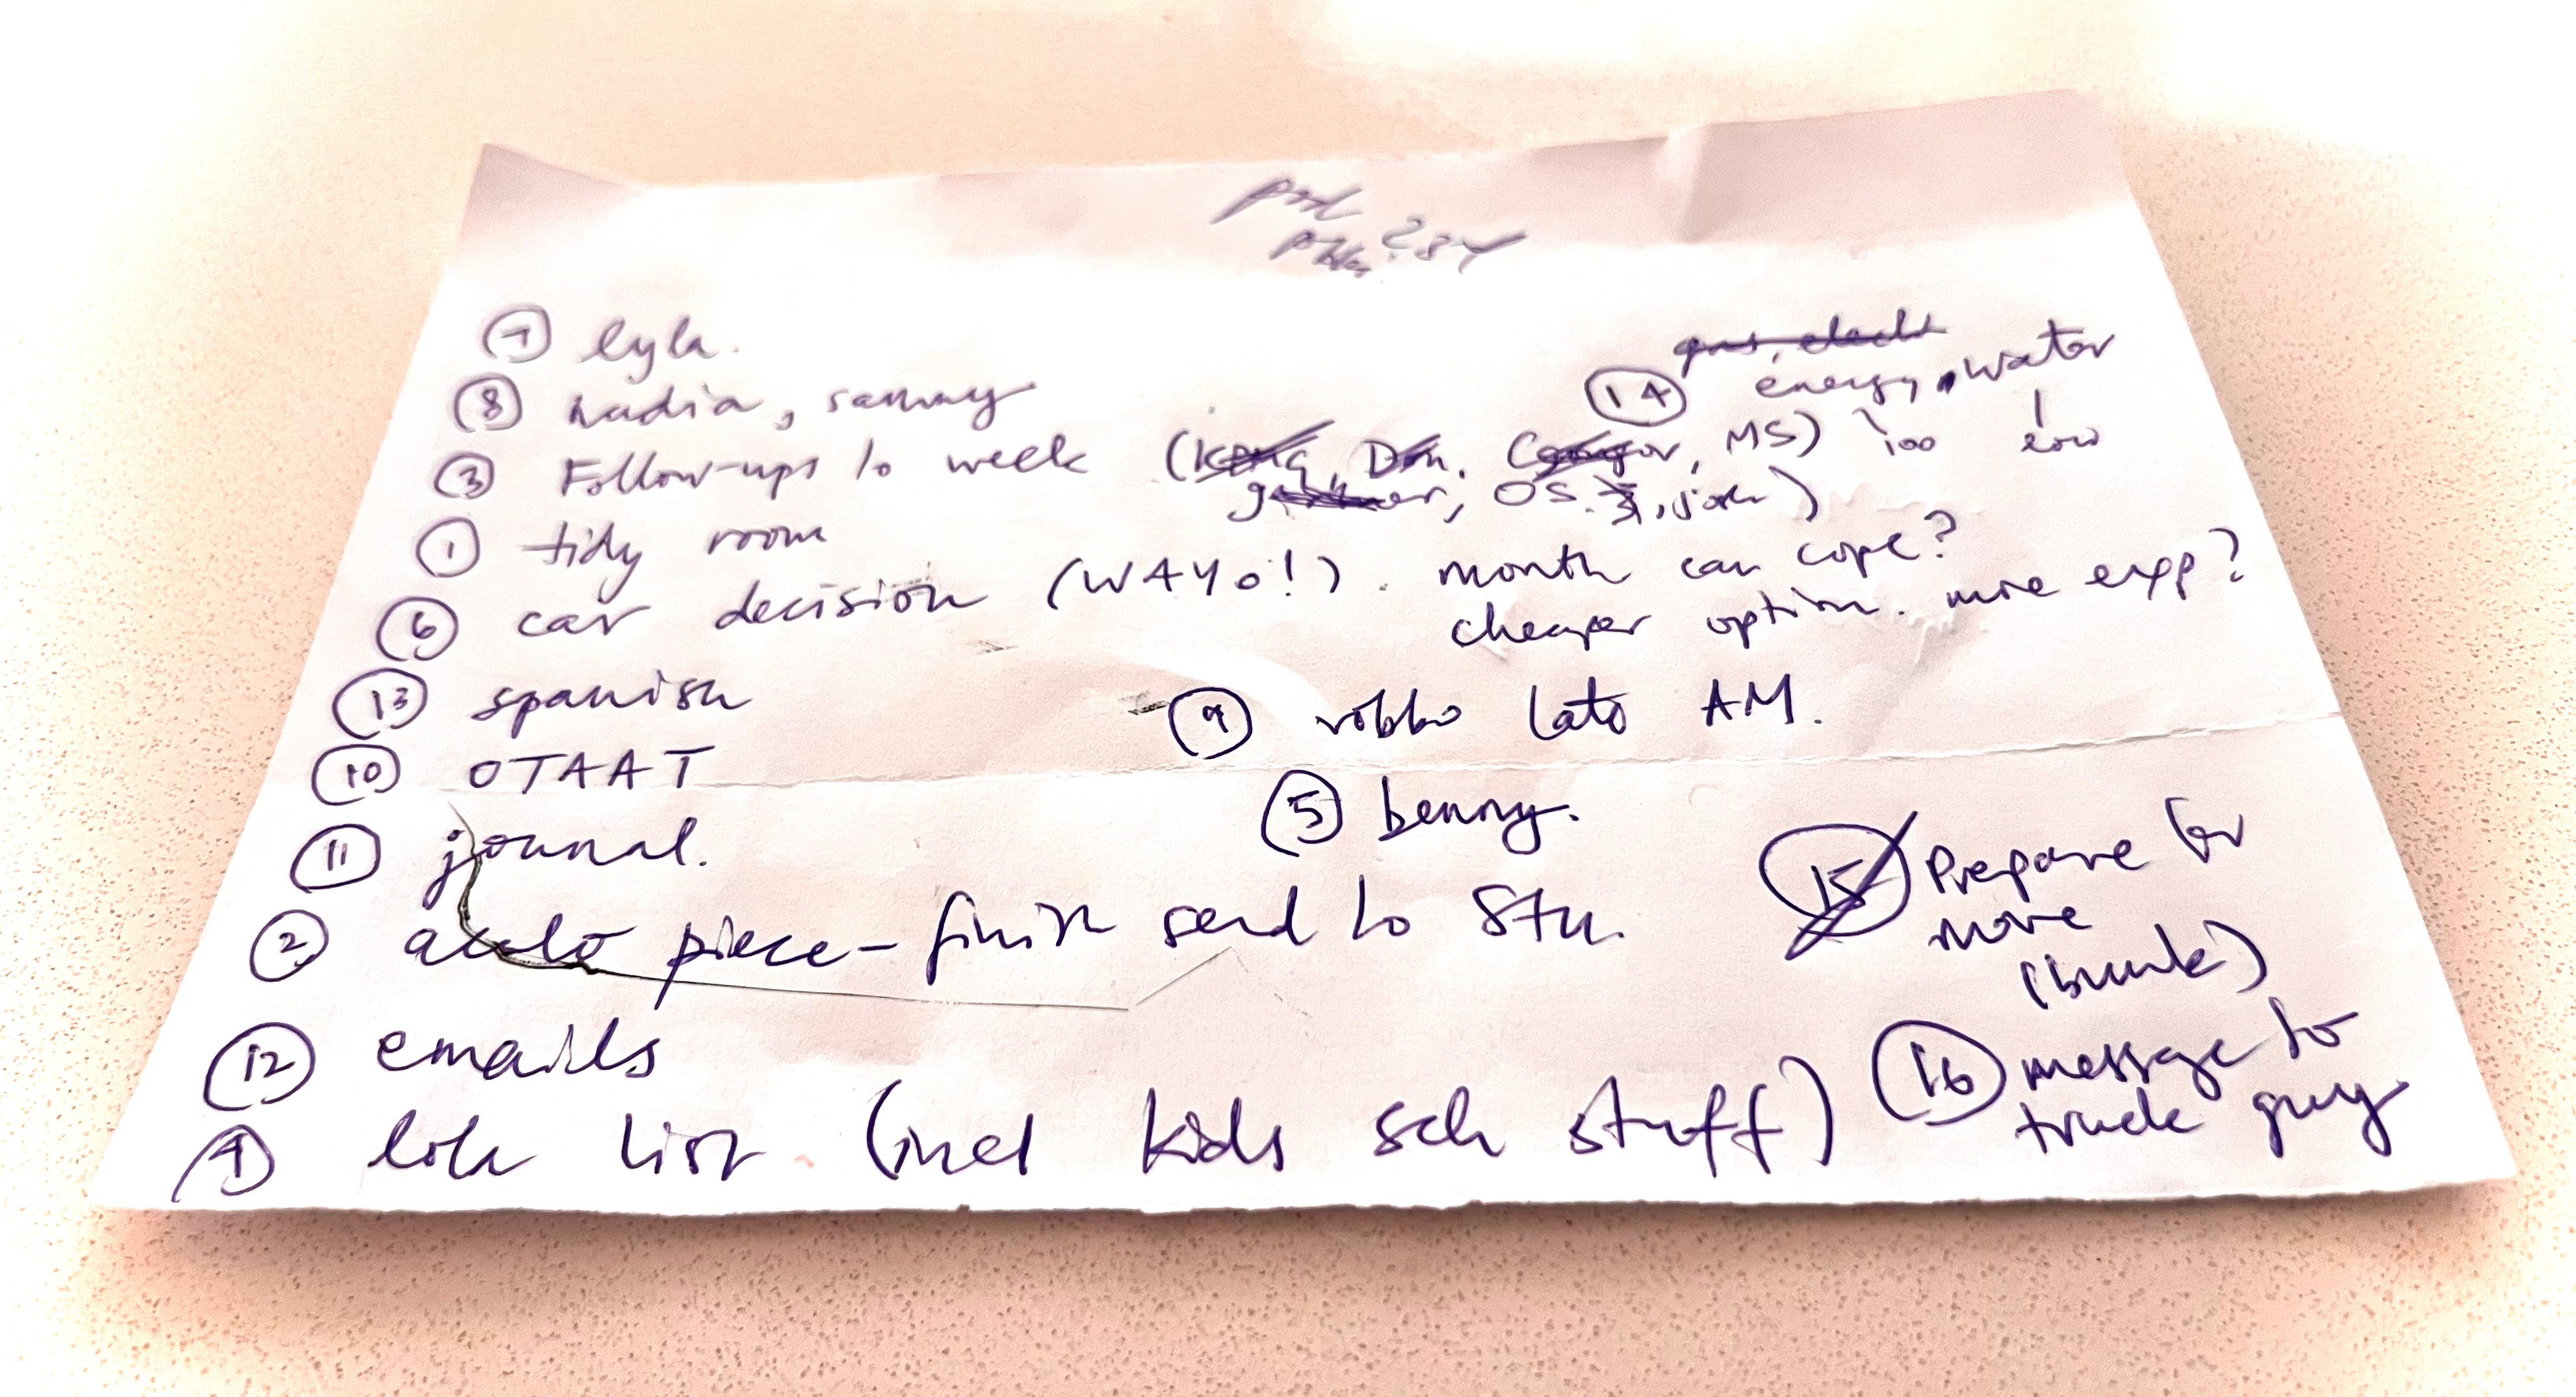 ⑦ lyla.
⑧ nadia, sammy
③ Follow-ups to week (Kong, Don, Connor, MS)
OS, josh)
① tidy room
⑥ car decision (WAYO!). month can cope?
cheaper option. more exp?
⑬ spanish
⑩ OTAAT
⑪ journal.
② piece - finish send to Stu.
⑫ emails
④ list (incl kids sch stuff)
gas, elect
⑭ energy, water
100
⑨ robbo late AM.
⑤ benny.
⑮ Prepare for
move
(bunk)
⑯ message to
truck guy